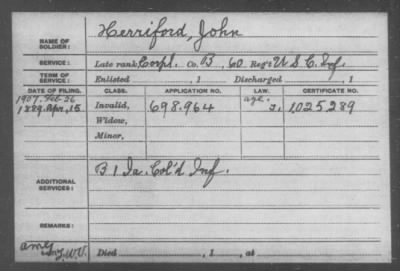 NAME OF SOLDIER: Herriford, John
SERVICE: Late rank Corpl. Co. B, 60 Reg't U S C. Inf.
TERM OF SERVICE: Enlisted , 1 Discharged , 1
DATE OF FILING. CLASS. APPLICATION NO. LAW. CERTIFICATE NO.
1907. Feb. 26 age.
1889. Apr. 15 Invalid, 698.964 J. 1,025,289
Widow,
Minor,
ADDITIONAL SERVICES: B 1 Ia. Col'd Inf.
REMARKS:
Died , 1 , at